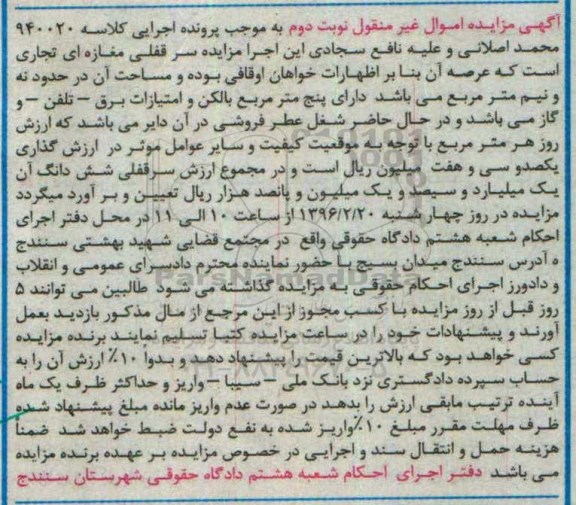 آگهی مزایده اموال غیر منقول نوبت دوم به موجب پرونده اجرایی کلاسه ۹۴۰۰۲۰
محمد اصلانی و علیه نافع سجادی این اجرا مزایده سر قفلی مغازه ای تجاری
است که عرصه آن بنا بر اظهارات خواهان اوقافی بوده و مساحت آن در حدود نه
و نیم متر مربع می باشد دارای پنج متر مربع بالکن و امتیازات برق – تلفن – و
گاز می باشد و در حال حاضر شغل عطر فروشی در آن دایر می باشد که ارزش
روز هر متر مربع با توجه به موقعیت کیفیت و سایر عوامل موثر در ارزش گذاری
یکصدو سی و هفت میلیون ریال است و در مجموع ارزش سرقفلی شش دانگ آن
یک میلیارد و سیصد و یک میلیون و پانصد هزار ریال تعیین و بر آورد میگردد
مزایده در روز چهار شنبه ۱۳۹۶/۲/۲۰ از ساعت ۱۰ الی ۱۱ در محل دفتر اجرای
احکام شعبه هشتم دادگاه حقوقی واقع در مجتمع قضایی شهید بهشتی سنندج
ه آدرس سنندج میدان بسیج با حضور نماینده محترم دادسرای عمومی و انقلاب
و دادورز اجرای احکام حقوقی به مزایده گذاشته می شود طالبین می توانند ۵
روز قبل از روز مزایده با کسب مجوز از این مرجع از مال مذکور بازدید بعمل
آورند و پیشنهادات خود را در ساعت مزایده کتبا تسلیم نمایند برنده مزایده
کسی خواهد بود که بالاترین قیمت را پیشنهاد دهد و بدوا ۱۰٪ ارزش آن را به
حساب سپرده دادگستری نزد بانک ملی – سیبا – واریز و حداکثر ظرف یک ماه
آینده ترتیب مابقی ارزش را بدهد در صورت عدم واریز مانده مبلغ پیشنهاد شده
ظرف مهلت مقرر مبلغ ۱۰٪واریز شده به نفع دولت ضبط خواهد شد ضمنا
هزینه حمل و انتقال سند و اجرایی در خصوص مزایده بر عهده برنده مزایده
می باشد دفتر اجرای احکام شعبه هشتم دادگاه حقوقی شهرستان سنندج
ParsNamadData